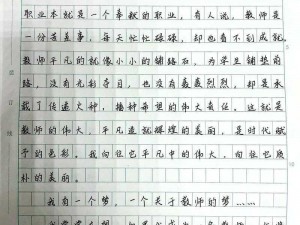 职业本就是一个奉献的职业，有人说，教师是
一份苦差事，每天忙忙碌碌，却也看不到成就，
教师平凡的就像小小的铺路石，为学生铺垫前
路，没有光彩夺目，也没有轰轰烈烈，却是承
载了传递火种，播种希望的伟大责任，这就是
教师的伟大，平凡造就辉煌的美丽，是时代赋
予的色彩。我向往它平凡中的伟大，向往它质
朴的美丽。
我有一个梦，一个关于教师的梦……